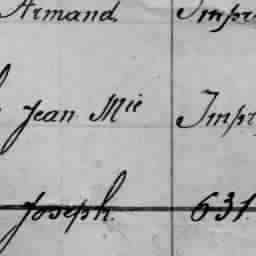 Armand. Impr
Jean Mie Impr
Joseph. 631.